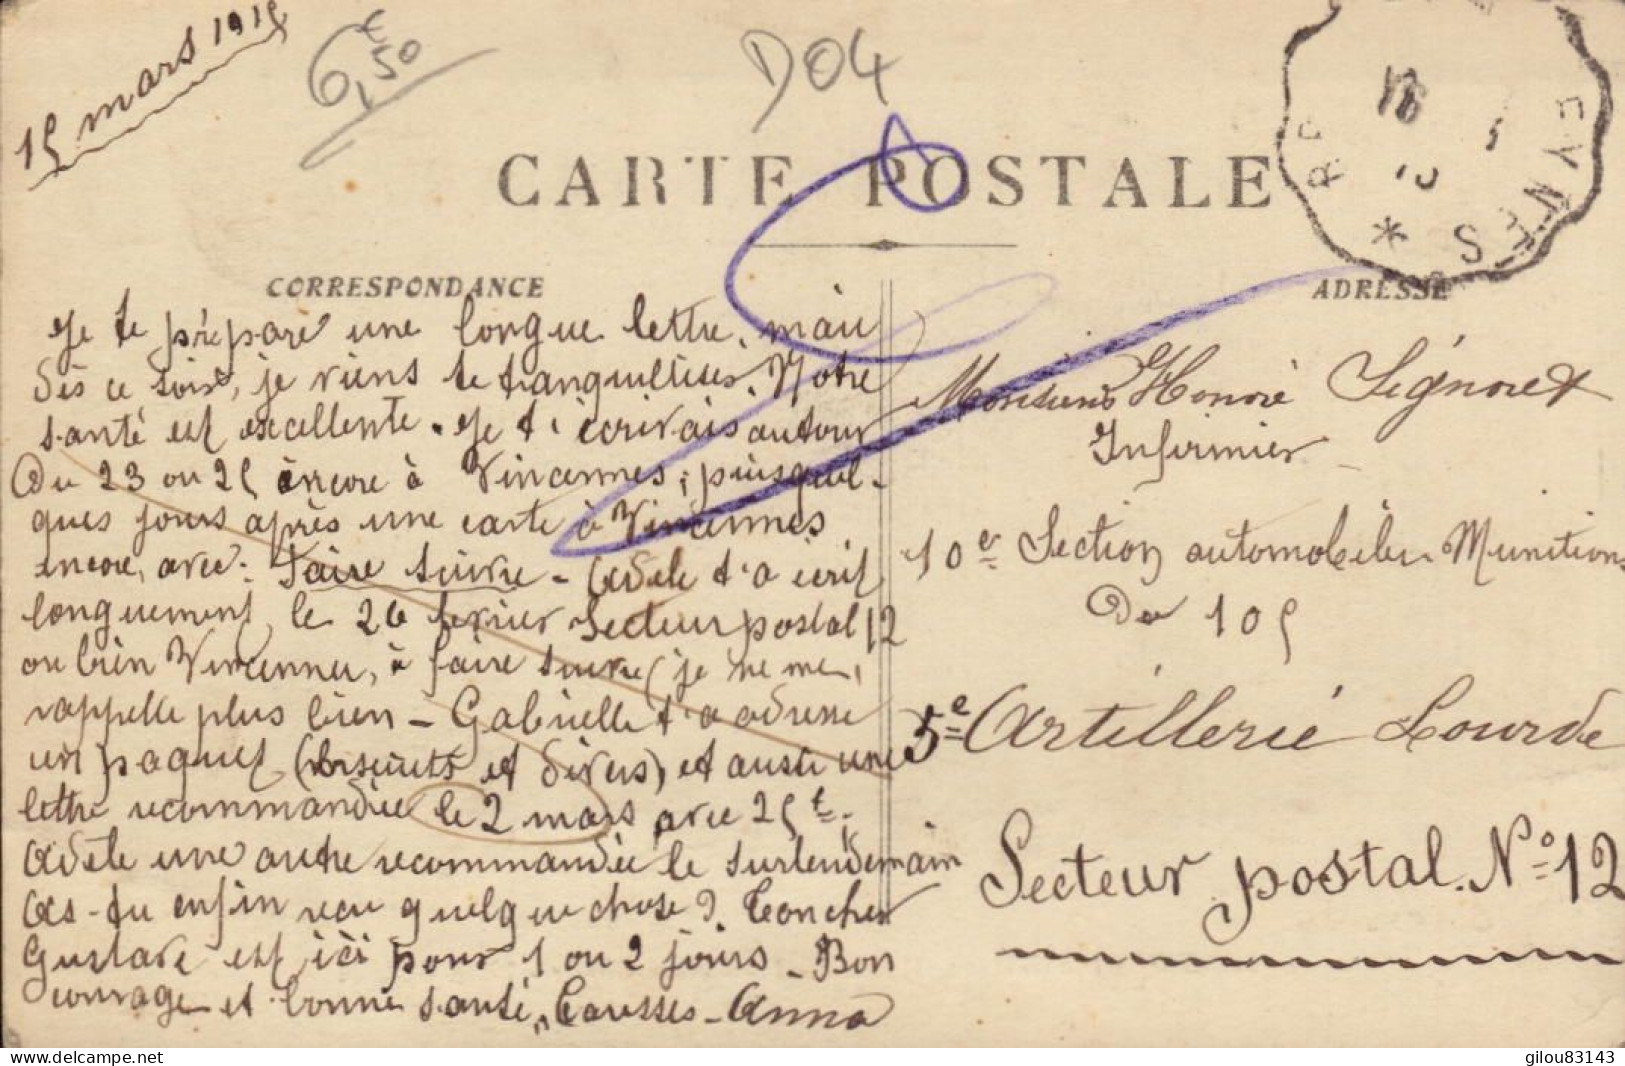 15 mars 1915
6,50€
D04
CARTE POSTALE
EYNES *
CORRESPONDANCE
ADRESSE
Je te prépare une longue lettre, mais
dès ce soir, je viens te tranquilliser. Notre
santé est excellente. Je t'écrivais autour
du 23 ou 25 encore à Vincennes, puis quel-
ques jours après une carte à Vincennes
encore, avec: Faire suivre - Adèle t'a écrit
longuement, le 26 février Secteur postal 12
ou bien Vincennes, à faire suivre (je ne me
rappelle plus bien - Gabrielle t'a adressé
un paquet (biscuits et divers), et aussi une
lettre recommandée le 2 mars avec 25f.
Adèle une autre recommandée le surlendemain
As-tu enfin reçu quelque chose?
Gustave est ici pour 1 ou 2 jours - Bon
courage et bonne santé, Caresses - Anna
Monsieur Honoré Signoret
Infirmier
10e Section automobile Munitions
de 105
5e Artillerie Lourde
Secteur postal. No 12
delcampe.net
gilou83143